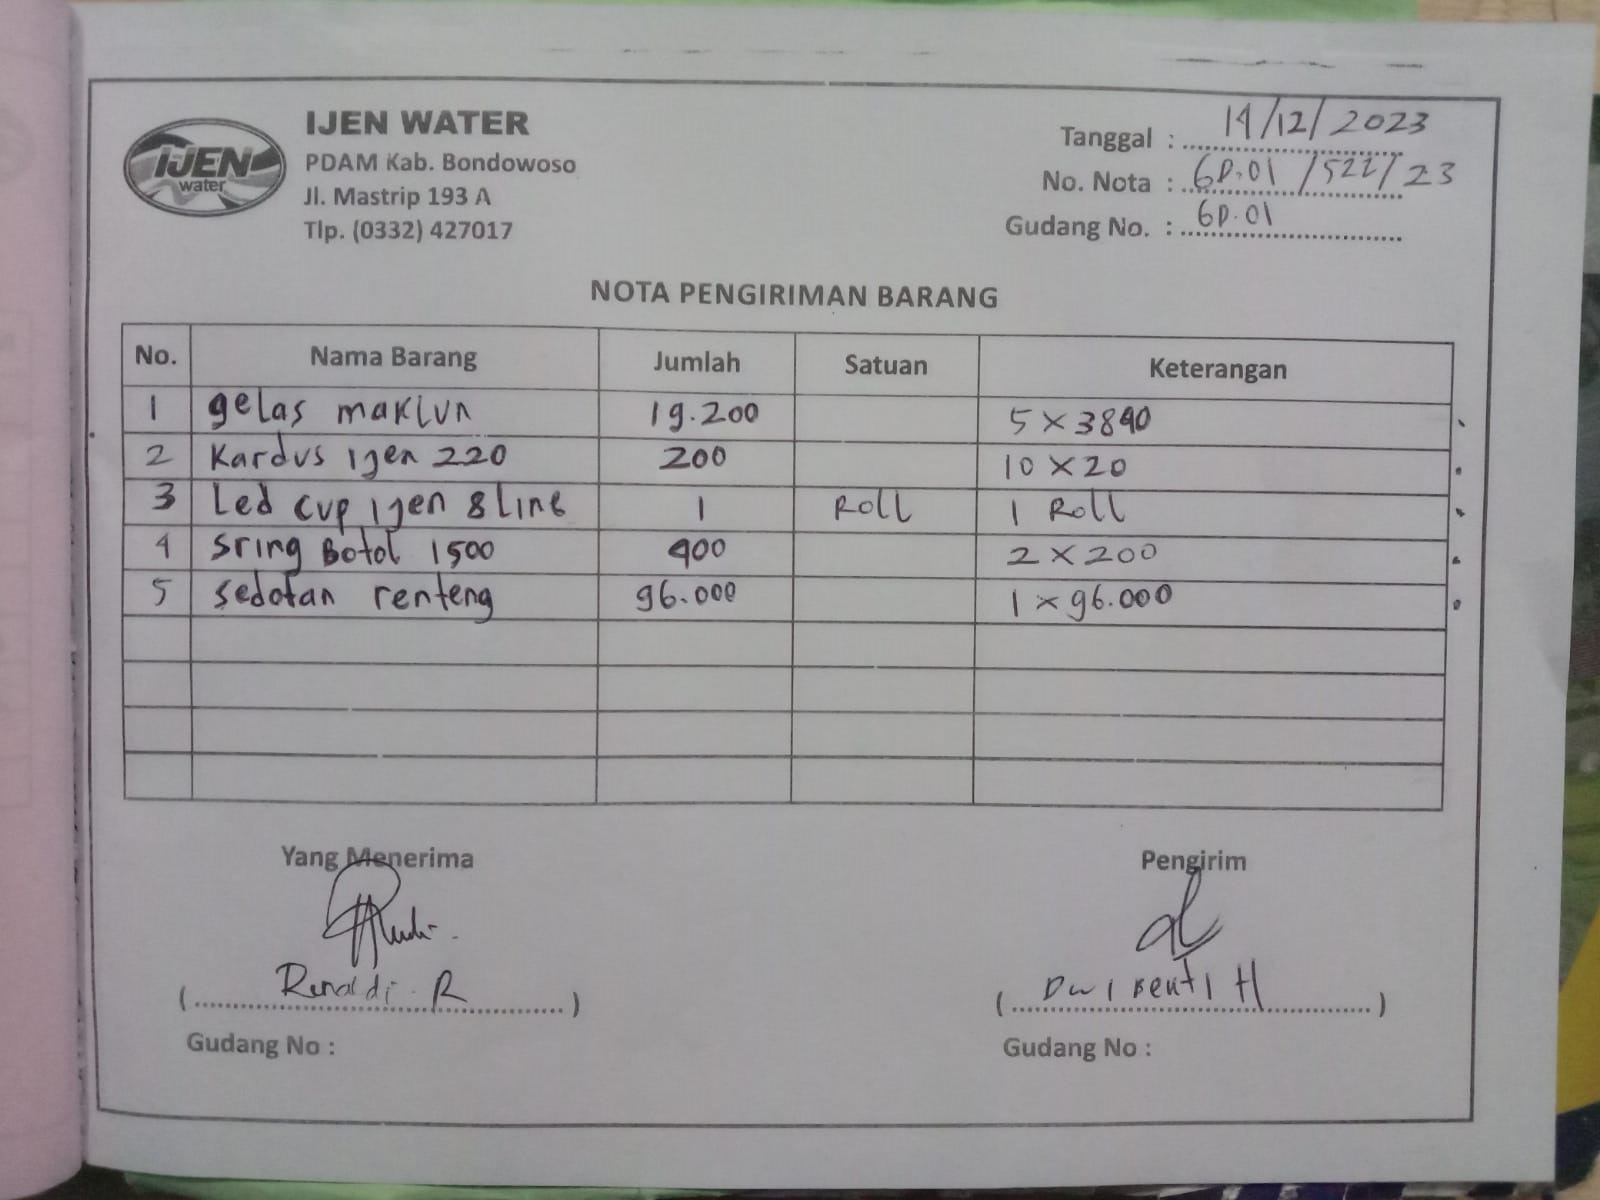 IJEN WATER
IJEN
water
PDAM Kab. Bondowoso
Jl. Mastrip 193 A
Tlp. (0332) 427017
Tanggal : 14/12/2023
No. Nota : GD.01 /522/23
Gudang No. : GD.01
NOTA PENGIRIMAN BARANG
No. Nama Barang Jumlah Satuan Keterangan
1 gelas maklun 19.200 5 x 3840
2 Kardus ijen 220 200 10 x 20
3 Led cup ijen 8 Line 1 Roll 1 Roll
4 Sring Botol 1500 400 2 x 200
5 Sedotan renteng 96.000 1 x 96.000
Yang Menerima Pengirim
(Renaldi . R) (Dwi H)
Gudang No : Gudang No :